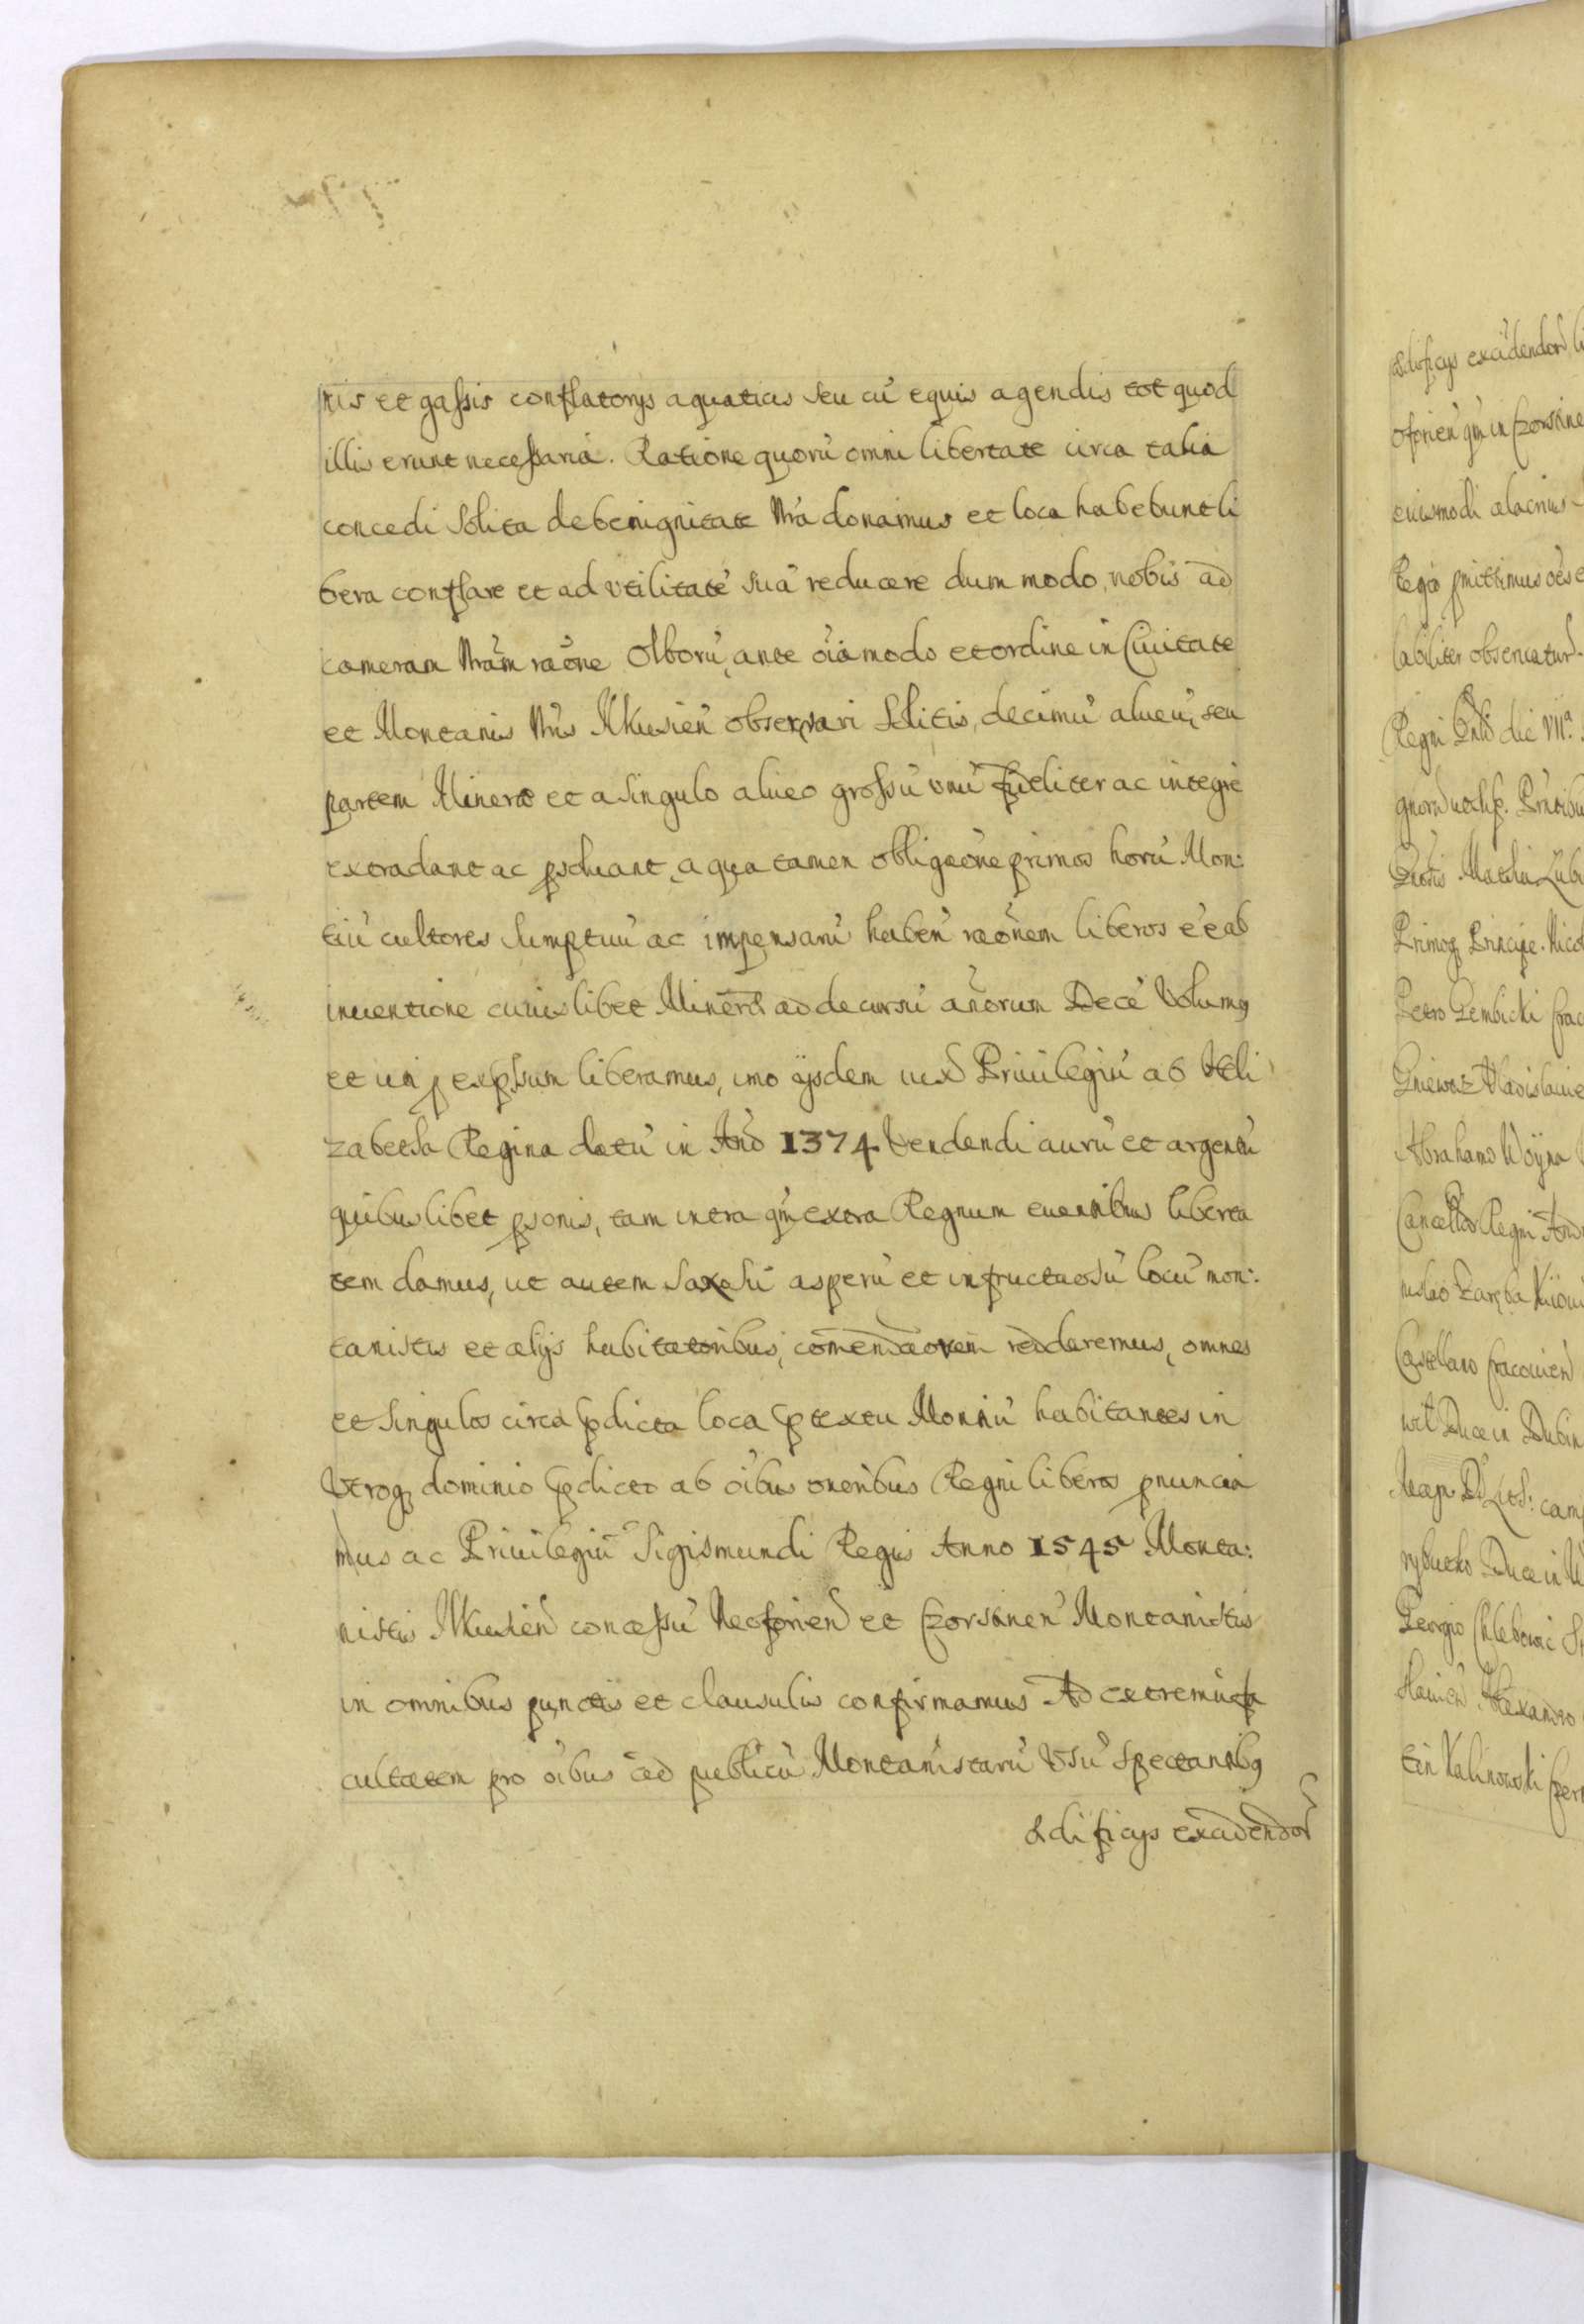 nis et gassis conflatorys aquaticis seu cu̅ equis agendis tot quod
illis erunt necessaria. Ratione quoru̅ omni libertate circa talia
concedi solita de benignitate nr̅a donamus et loca habebunt li
bera conflare et ad vtilitate̅ sua̅ reducere dum modo nobis ad
cameram nr̅am rao̅ne Olboru̅, ante oi̅a modo et ordine in Ciuitate
et Montanis nr̅is Ilkusien̅ observari solitis, decimu̅ alueu̅, seu
partem Mineræ et a singulo alueo grossu̅ vnu̅ fideliter ac integre
extradant ac psoluant, a qua tamen obligao̅ne primos horu̅ Mon:
tiu̅ cultores sumptuu̅ ac impensaru̅ haben̅ rao̅nem liberos e̅e ab
inuentione cuiuslibet Mineræ ad decursu̅ an̅orum Dece̅ Volumq
et in p exp̅sum liberamus, imo ijsdem iux Priuilegiu̅ ab Heli
zabetha Regina datu̅ in Ano 1374 Vendendi auru̅ et argentu̅
quibuslibet psonis, tam intra qm̅ extra Regnum euentibus liberta
tem damus, ut autem saxosu̅ asperu̅ et infructuosu̅ locu̅ mon:
tanistis et alijs habitatoribus, com̅endao̅nem redderemus, omnes
et singulos circa p̅dicta loca p̅textu Montiu̅ habitantes in
Vtroq dominio p̅dicto ab oi̅bus oneribus Regni liberos pnuncia
mus ac Priuilegiu̅ Sigismundi Regis Anno 1545 Monta:
nistis Ilkusien̅ concessu̅ Neoforien̅ et Czorstinen̅ Montanistis
in omnibus punctis et clausulis confirmamus Ad extremu̅ fa
cultatem pro oi̅bus ad publicu̅ Montanistaru̅ Vsu̅ spectantibq
ædificijs excidendor
ædificijs excidendor li
oforien̅ qm̅ in Czorstine
eiusmodi alacrius
Regia pmittimus oe̅s e
labiliter obseruatur
Regni die VIIa
Mathia Lubi
Primoq Principe. Nicol
Petro Gembicki Crac
Gniewosz Vladislauie
Abrahamo Woÿna
Cancellar Regni And
nislao Zaręba Kÿoui
Castellano Cracouien
wil Duce in Dubin
Magn D Lith: cam
rybutho Duce in W
Georgio Chlebowic
Alexandro
tin Kalinowski Czer